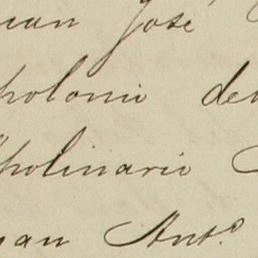 uan José
polonio de
Apolinario
uan Ant.º